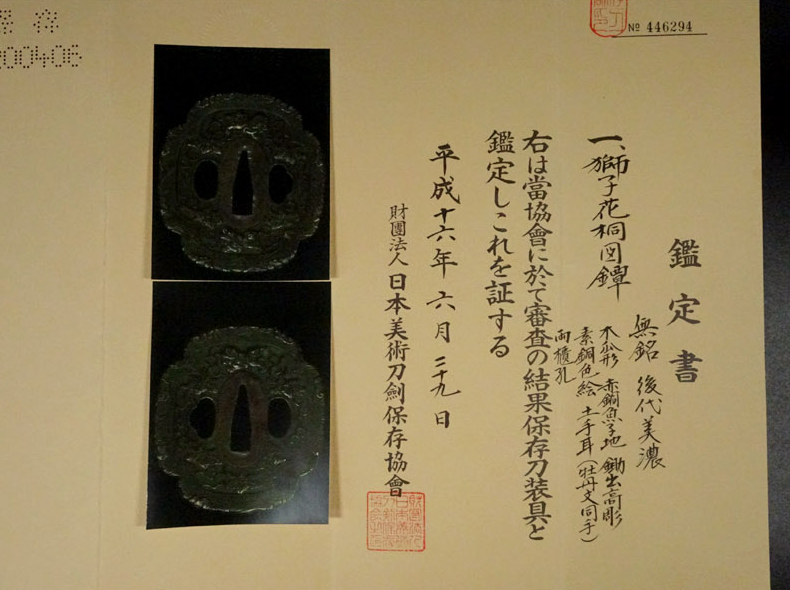 № 446294
鑑定書
無銘 後代美濃
一、獅子花桐図鐔
木瓜形 赤銅魚子地 鋤出高彫
素銅色絵 土手耳(牡丹文同手)
両櫃孔
右は當協會に於て審査の結果保存刀装具と
鑑定しこれを証する
平成十六年 六月 二十九日
財團法人 日本美術刀劍保存協會
存
00406